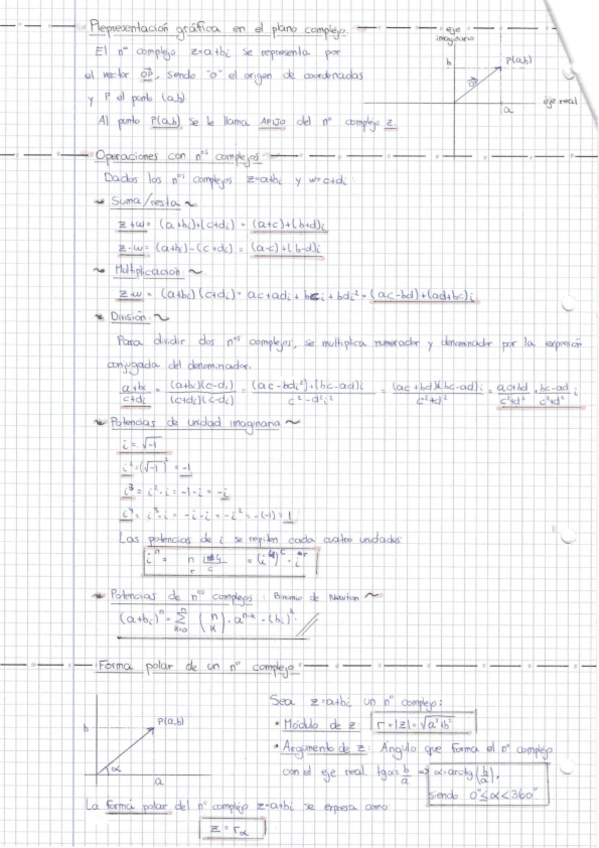 Representación gráfica en el plano complejo.
El nº complejo z=a+bi se representa por
el vector OP, siendo "o" el origen de coordenadas
y P el punto (a,b).
Al punto P(a,b) se le llama AFIJO del nº complejo z.
eje
imaginario
b
P(a,b)
OP
a
eje real
Operaciones con nºs complejos
Dados los nºs complejos z=a+bi y w=c+di:
~ Suma/resta ~
z+w= (a+bi)+(c+di) = (a+c)+(b+d)i
z-w= (a+bi)-(c+di) = (a-c)+(b-d)i
~ Multiplicación ~
z·w = (a+bi)(c+di)= ac+adi+bci+bdi² = (ac-bd)+(ad+bc)i
~ División ~
Para dividir dos nºs complejos, se multiplica numerador y denominador por la expresión
conjugada del denominador.
a+bi/c+di = (a+bi)(c-di)/(c+di)(c-di) = (ac-bdi²)+(bc-ad)i/c²-d²i² = (ac+bd)(bc-ad)i/c²+d² = ac+bd/c²+d² bc-ad/c²+d² i
~ Potencias de unidad imaginaria ~
i = √-1
i²=(√-1)² = -1
i³ = i²·i = -1·i = -i
i⁴ = i³·i = -i·i = -i² = -(-1) = 1
Las potencias de i se repiten cada cuatro unidades
iⁿ = n 4 r c = (i⁴)ᶜ · iʳ
~ Potencias de nºs complejos: Binomio de Newton ~
(a+bi)ⁿ = Σ n k=0 (n k) · aⁿ⁻ᵏ · (bi)ᵏ
Forma polar de un nº complejo
b
P(a,b)
α
a
Sea z=a+bi un nº complejo:
• Módulo de z r=|z|=√a²+b²
• Argumento de z: Ángulo que forma el nº complejo
con el eje real tgα = b/a ⇒ α=arctg(b/a),
siendo 0°≤α<360°
La forma polar del nº complejo z=a+bi se expresa como
z = rα